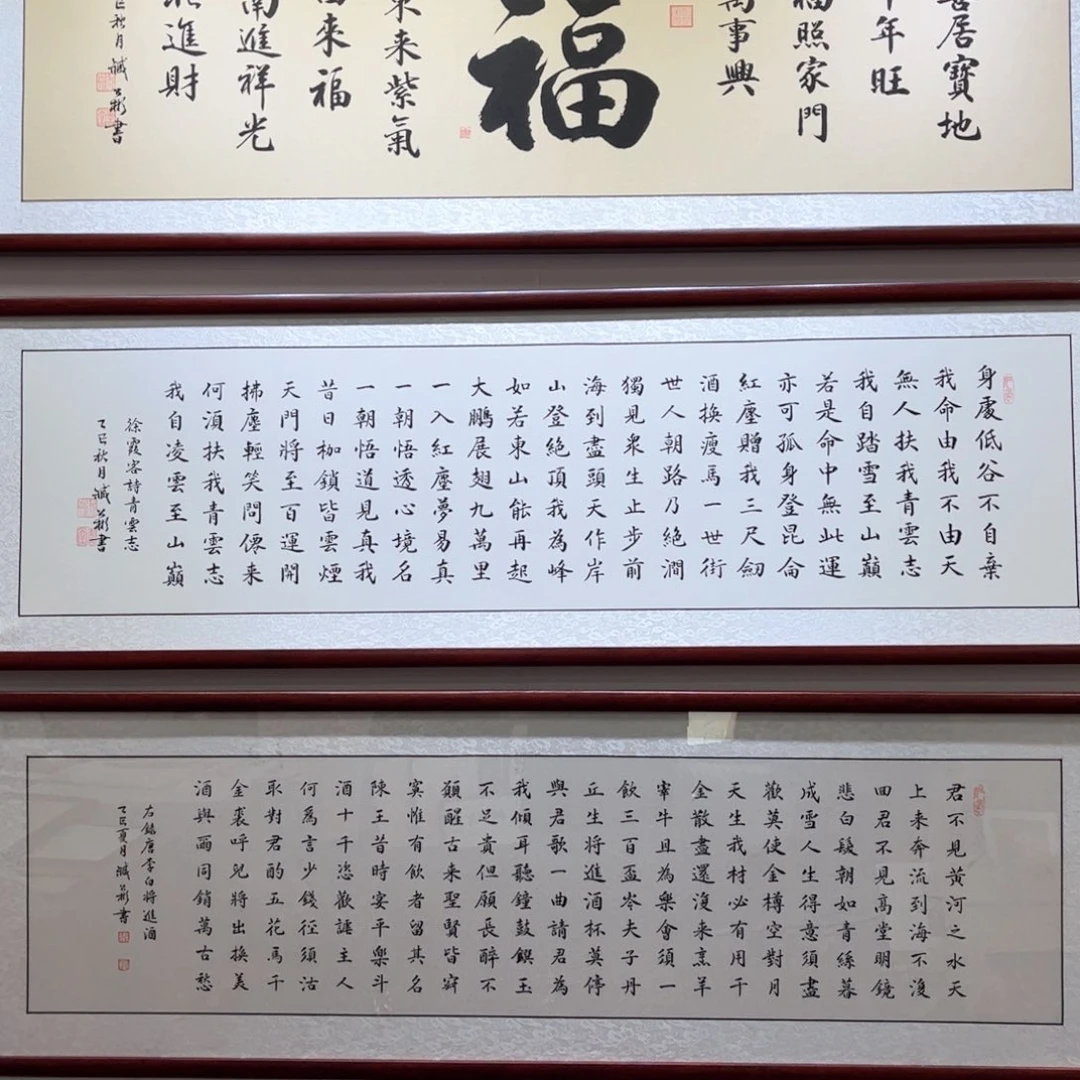 喜居寶地
千年旺
福照家門
萬事興
福
東来紫氣
西来福
南進祥光
北進財
乙巳秋月 誠彬書
身處低谷不自棄
我命由我不由天
無人扶我青雲志
我自踏雪至山巔
若是命中無此運
亦可孤身登昆侖
紅塵贈我三尺劍
酒換瘦馬一世街
世人朝路乃絕澗
獨見衆生止步前
海到盡頭天作岸
山登絕頂我為峰
如若東山能再起
大鵬展翅九萬里
一入紅塵夢易真
一朝悟透心境名
一朝悟道見真我
昔日枷鎖皆雲煙
天門將至百運開
拂塵輕笑問僊来
何須扶我青雲志
我自凌雲至山巔
徐霞客詩青雲志
乙巳秋月 誠彬書
君不見黃河之水天
上来奔流到海不復
回君不見高堂明鏡
悲白髮朝如青絲暮
成雪人生得意須盡
歡莫使金樽空對月
天生我材必有用千
金散盡還復来烹羊
宰牛且為樂會須一
飲三百盃岑夫子丹
丘生將進酒杯莫停
與君歌一曲請君為
我傾耳聽鐘鼓饌玉
不足貴但願長醉不
願醒古来聖賢皆寂
寞惟有飲者留其名
陳王昔時宴平樂斗
酒十千恣歡謔主人
何為言少錢径須沽
取對君酌五花馬千
金裘呼兒將出換美
酒與爾同銷萬古愁
右錄唐李白將進酒
乙巳夏月 誠彬書